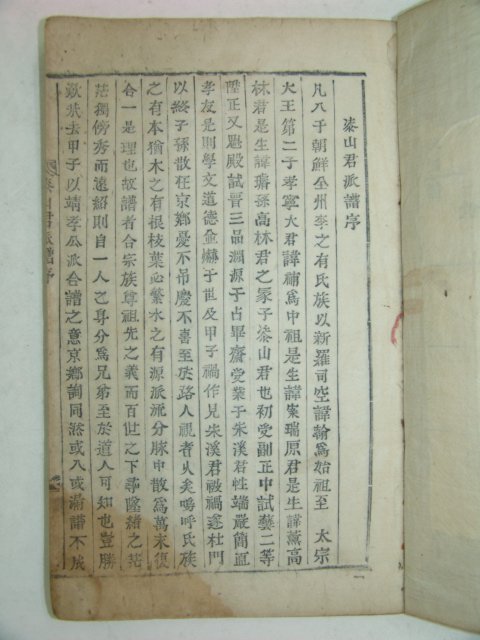 漆山君派譜序
凡八于朝鮮全州李之有氏族以新羅司空諱翰爲始祖至 太宗
大王第二子孝寧大君諱補爲中祖是生諱寀瑞原君是生諱薰高
林君是生諱璠孫高林君之冢子漆山君也初受副正中試藝二等
陞正又魁殿試晉三品溯源于占畢齋受業于朱溪君性端嚴簡直
孝友是則學文道德金赫于世及甲子禍作見朱溪君被禍遂杜門
以終子孫散在京鄉憂不吊慶不喜至於路人視者久矣嗚呼氏族
之有本猶木之有根枝葉必繁水之有源派流分脉中散爲萬末復
合一是理也故譜者合宗族尊祖先之義而百世之下尋墜緖之茫
茫獨傍夯而遠紹則自一人之身分爲兄弟至於道人可知也豈勝
歎哉去甲子以靖孝公派合譜之意京鄉詢同滋或入或漏譜不成
漆山君派譜序